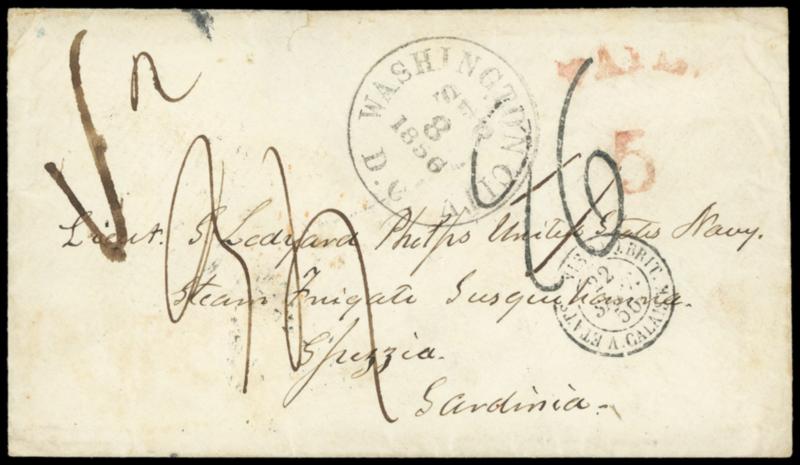 WASHINGTON CITY D.C.
SEP
8
1856
5
16
Lieut. S Ledyard Phelps United States Navy.
Steam Frigate Susquehanna.
Spezzia.
Sardinia.
ETATS-UNIS BRIT. A. CALAIS
22
56